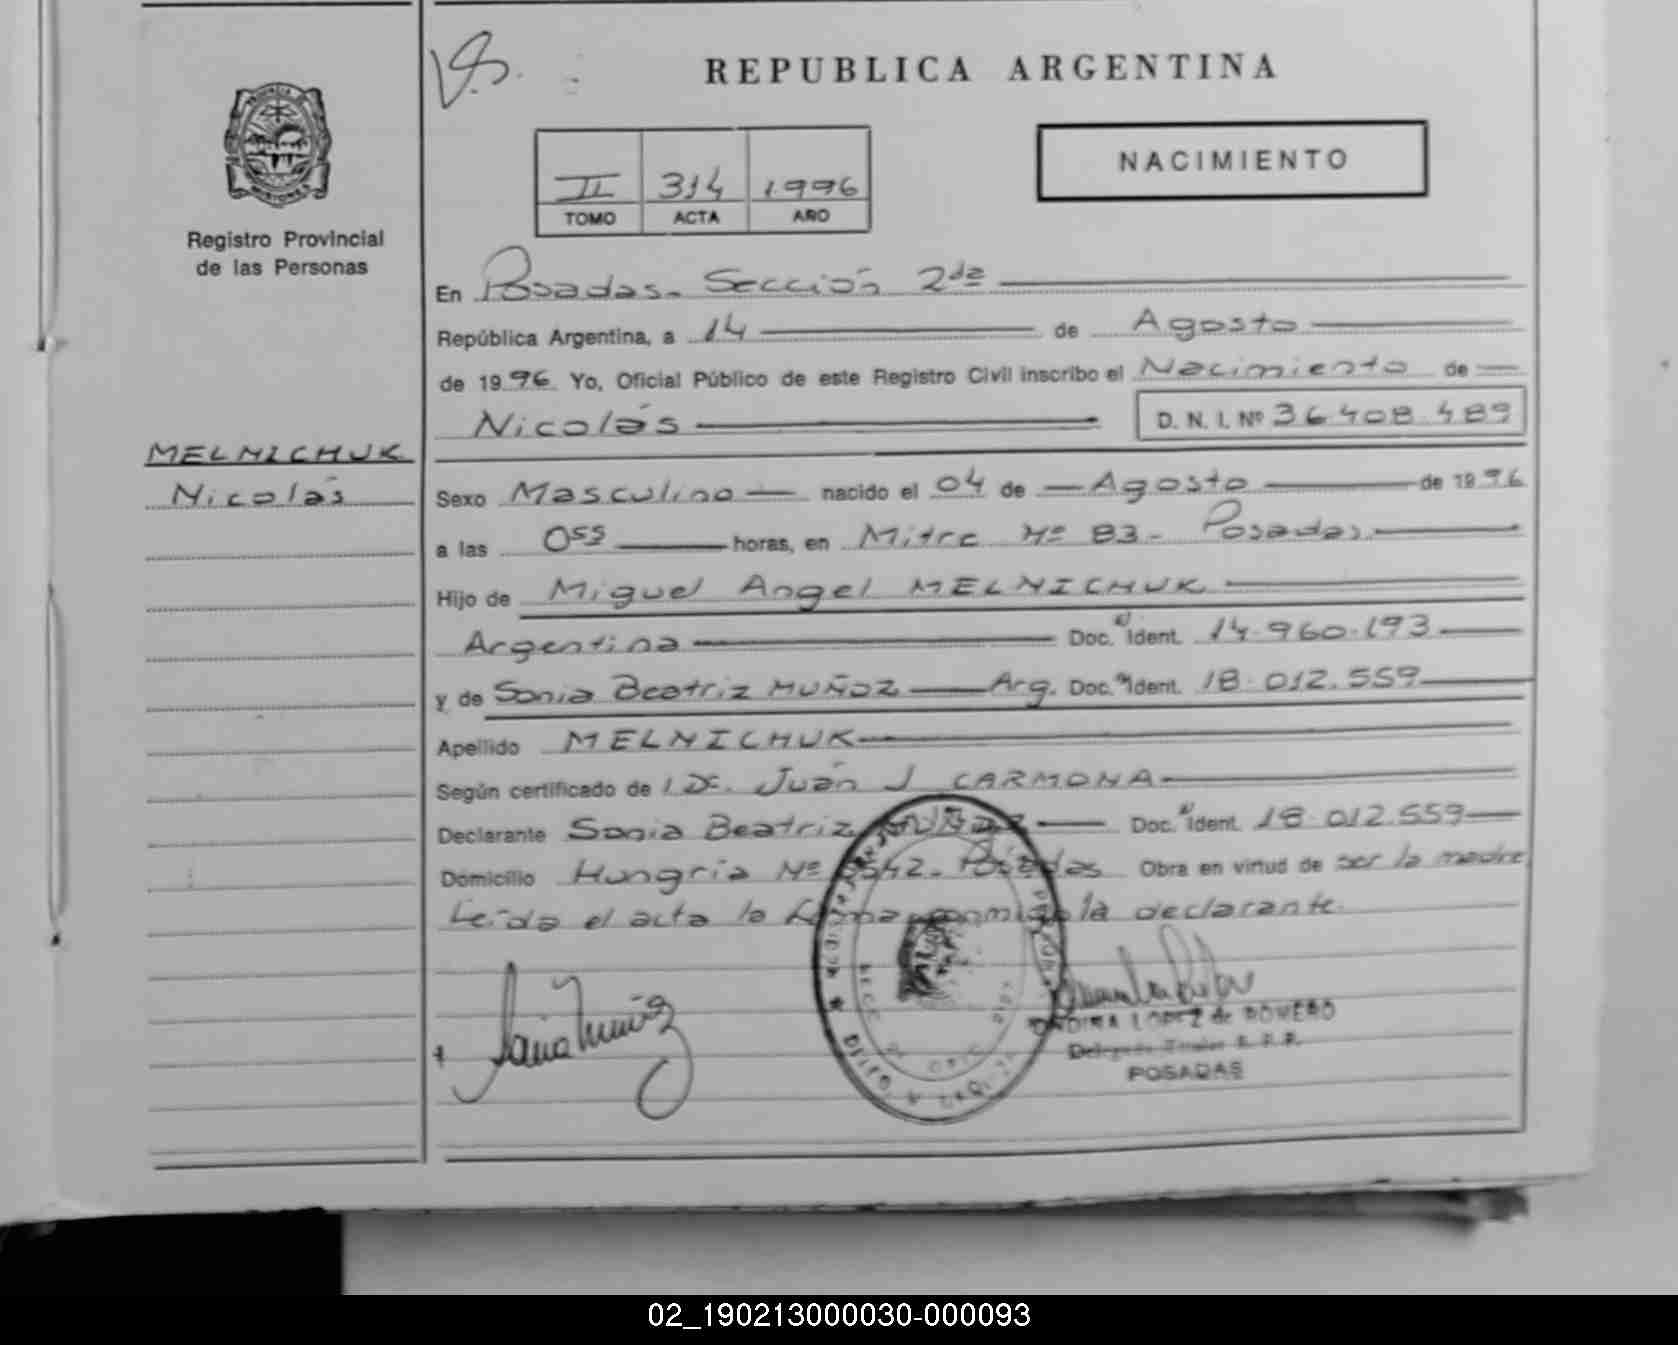 REPUBLICA ARGENTINA
NACIMIENTO
II 314 1996
TOMO ACTA AÑO
Registro Provincial
de las Personas
En Posadas - Sección 2da
República Argentina, a 14 de Agosto
de 1996 Yo, Oficial Público de este Registro Civil inscribo el Nacimiento de
Nicolás D. N. I. Nº 36.408.489
MELNICHUK
Nicolás
Sexo Masculino nacido el 04 de Agosto de 1996
a las 0:55 horas, en Mitre Nº 83 - Posadas
Hijo de Miguel Angel MELNICHUK
Argentina Doc. Ident. 14.960.193
y de Sonia Beatriz MUÑOZ Arg. Doc. Ident. 18.012.559
Apellido MELNICHUK
Según certificado de Dr. Juan J CARMONA
Declarante Sonia Beatriz MUÑOZ Doc. Ident. 18.012.559
Domicilio Hungria Nº Posadas Obra en virtud de ser la madre
Leída el acta la firma conmigo la declarante.
Sonia Muñoz
LOPEZ de ROMERO
Delegada Titular R. P. P.
POSADAS
02_190213000030-000093